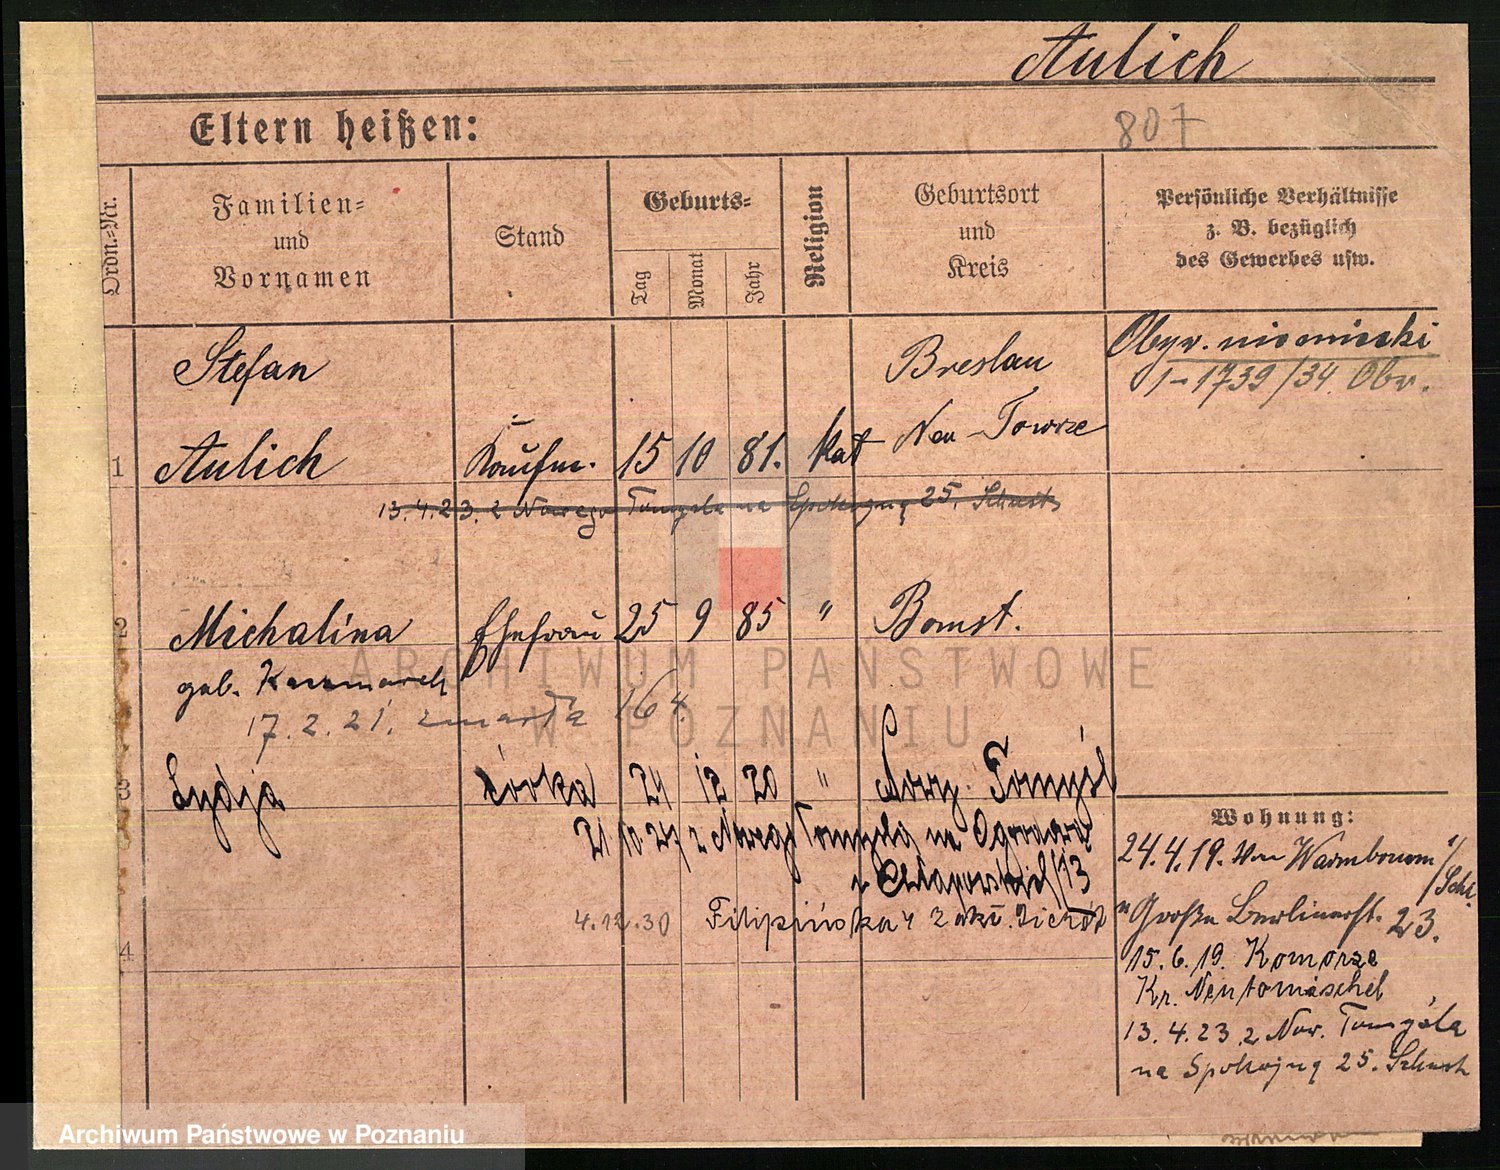 Aulich
Eltern heißen:
807
Ordn.-Nr.
Familien-
und
Vornamen
Stand
Geburts-
Tag
Monat
Jahr
Religion
Geburtsort
und
Kreis
Persönliche Verhältnisse
z. B. bezüglich
des Gewerbes usw.
Stefan
Breslau
Obyw. niemiecki
1-1739/34 Obr.
1
Aulich
Kaufm.
15
10
81.
kat
Neu-Towrze
13.4.23. z Nowego Tomyśla na Spokojną 25.
2
Michalina
Ehefrau
25
9
85
"
Bomst.
geb. Kaczmarek
17.2.21. zmarła 164.
3
Lydja
córka
24
12
20
"
Nowy Tomyśl
21 10 27 z Nowego Tomyśla na Ogrodową
4.12.30 Filipińska 4
4
Wohnung:
24.4.19. Von
Große Berlinerst. 23.
15.6.19. Komorze
Kr. Neutomischel
13.4.23 z Now. Tomyśla
na Spokojną 25.
ARCHIWUM PAŃSTWOWE
W POZNANIU
Archiwum Państwowe w Poznaniu